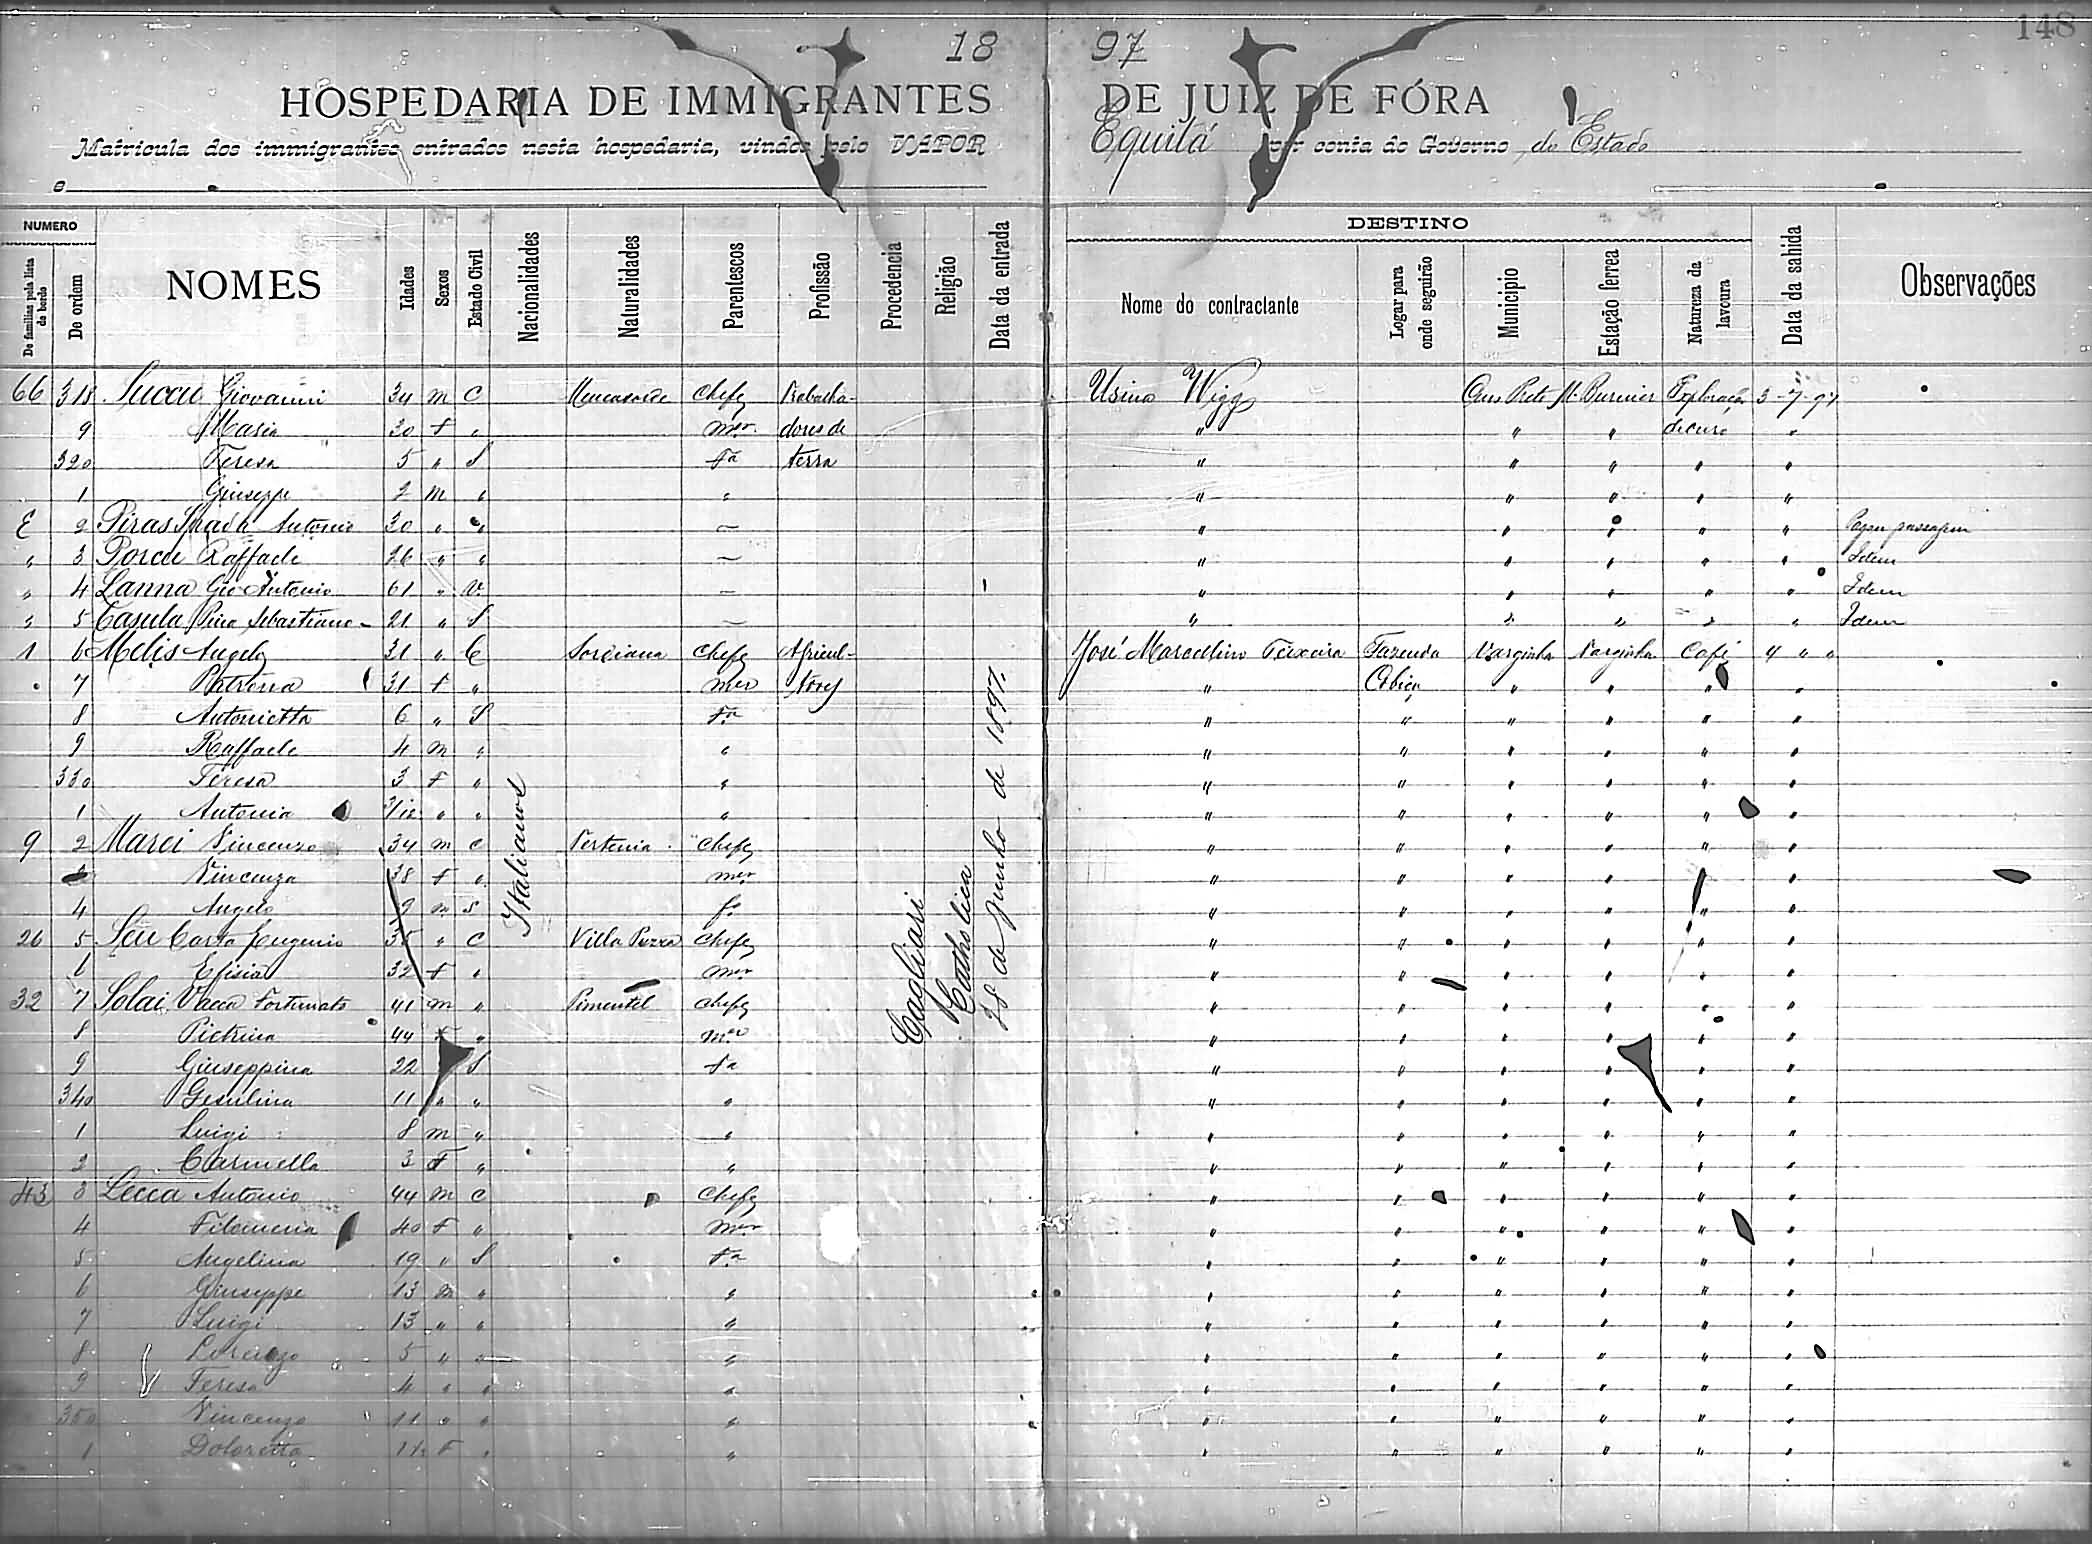 148
18 97
HOSPEDARIA DE IMMIGRANTES DE JUIZ DE FÓRA
Matricula dos immigrantes entrados nesta hospedaria, vindos pelo VAPOR Equitá por conta do Governo do Estado
e
NUMERO
De familias pela lista de bordo
De ordem
NOMES
Idades
Sexos
Estado Civil
Nacionalidades
Naturalidades
Parentescos
Profissão
Procedencia
Religião
Data da entrada
DESTINO
Nome do contractante
Logar para onde seguirão
Municipio
Estação ferrea
Natureza da lavoura
Data da sahida
Observações
66 318 Succu Giovanni 34 m C Chefe Trabalha- Usina Wigg Ouro Preto M. Burnier Exploração 3-7-97
9 Maria 30 F " mer dores de " " " "
320 Teresa 5 " S Fa terra " " " " "
1 Giuseppe 2 m " " " " " " "
E 2 Piras Antonio 30 " " — " " " " " Pagou passagem
" 3 Porcu Raffaele 26 " " — " " " " " Idem
" 4 Lanna Gio Antonio 61 " V — " " " " " Idem
" 5 Casula Pira Sebastiano 21 " S — " " " " " Idem
1 6 Melis Angelo 31 " C Chefe Agricul- José Marcellino Teixeira Fazenda Varginha Varginha Café 4 " "
7 31 F " mer tores " " " " "
8 Antonietta 6 " S Fa " " " " " "
9 Raffaele 4 m " " " " " " " "
330 Teresa 3 F " " " " " " " "
1 Antonia 3/12 " " " " " " " " "
9 2 Marci Vincenzo 34 m C Chefe " " " " " "
Vincenza 38 F " mer " " " " " "
4 Angelo 9 m S fo " " " " " "
26 5 Seu Carta Eugenio 35 " C Villa Chefe " " " " " "
6 Efisia 32 F " mer " " " " " "
32 7 Solai Vacca Fortunato 41 m " Pimentel Chefe " " " " " "
8 Pietrina 44 F " mer " " " " " "
9 Giuseppina 22 S Fa " " " " " "
340 Gesulina 11 " " " " " " " " "
1 Luigi 8 m " " " " " " " "
2 Carmella 3 F " " " " " " " "
43 3 Lecca Antonio 44 m C Chefe " " " " " "
4 Filomena 40 F " mer " " " " " "
5 Angelina 19 " S Fa " " " " " "
6 Giuseppe 13 m " " " " " " " "
7 Luigi 13 " " " " " " " " "
8 Lorenzo 5 " " " " " " " " "
9 Teresa 4 " " " " " " " " "
350 Vincenzo 11 " " " " " " " " "
1 Doloretta F " " " " " " " "
Italianos
Cagliari
Catholica
28 de Junho de 1897.